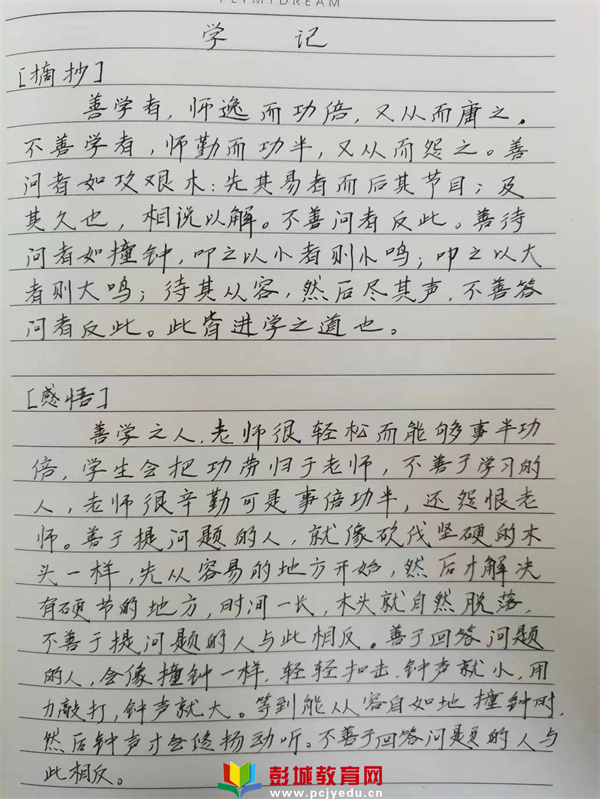 学 记
[摘抄]
善学者，师逸而功倍，又从而庸之。
不善学者，师勤而功半，又从而怨之。善
问者如攻艰木：先其易者而后其节目；及
其久也，相说以解。不善问者反此。善待
问者如撞钟，叩之以小者则小鸣；叩之以大
者则大鸣；待其从容，然后尽其声，不善答
问者反此。此皆进学之道也。
[感悟]
善学之人，老师很轻松而能够事半功
倍，学生会把功劳归于老师，不善于学习的
人，老师很辛勤可是事倍功半，还怨恨老
师。善于提问题的人，就像砍伐坚硬的木
头一样，先从容易的地方开始，然后才解决
有硬节的地方，时间一长，木头就自然脱落，
不善于提问题的人与此相反。善于回答问题
的人，会像撞钟一样，轻轻扣击，钟声就小，用
力敲打，钟声就大。等到能从容自如地撞钟时，
然后钟声才会悠扬动听。不善于回答问题的人与
此相反。
彭城教育网
www.pcjyedu.cn